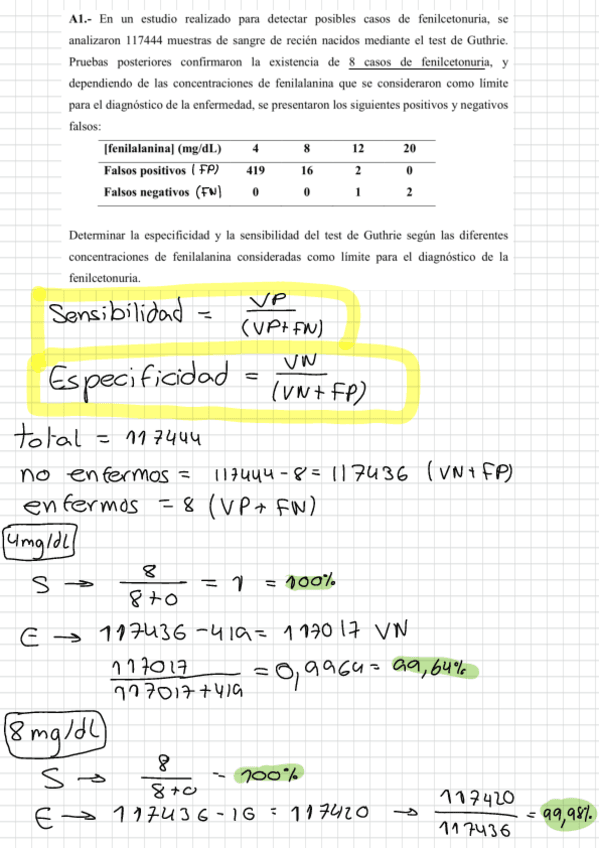 A1.- En un estudio realizado para detectar posibles casos de fenilcetonuria, se
analizaron 117444 muestras de sangre de recién nacidos mediante el test de Guthrie.
Pruebas posteriores confirmaron la existencia de 8 casos de fenilcetonuria, y
dependiendo de las concentraciones de fenilalanina que se consideraron como límite
para el diagnóstico de la enfermedad, se presentaron los siguientes positivos y negativos
falsos:
[fenilalanina] (mg/dL) 4 8 12 20
Falsos positivos (FP) 419 16 2 0
Falsos negativos (FN) 0 0 1 2
Determinar la especificidad y la sensibilidad del test de Guthrie según las diferentes
concentraciones de fenilalanina consideradas como límite para el diagnóstico de la
fenilcetonuria.
Sensibilidad = VP / (VP+FN)
Especificidad = VN / (VN+FP)
total = 117444
no enfermos = 117444-8 = 117436 (VN+FP)
enfermos = 8 (VP+FN)
4mg/dL
S → 8 / 8+0 = 1 = 100%
E → 117436-419 = 117017 VN
117017 / 117017+419 = 0,9964 = 99,64%
8 mg/dL
S → 8 / 8+0 = 100%
E → 117436-16 = 117420 → 117420 / 117436 = 99,98%